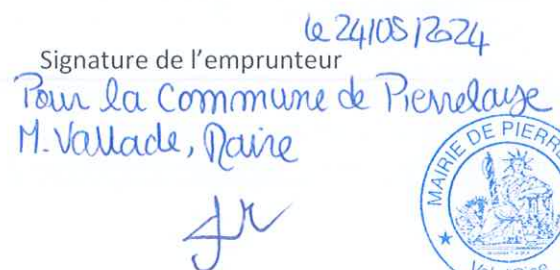 le 24/05/2024
Signature de l'emprunteur
Pour la Commune de Pierrelaye
M. Vallade, Maire
MAIRIE DE PIERR